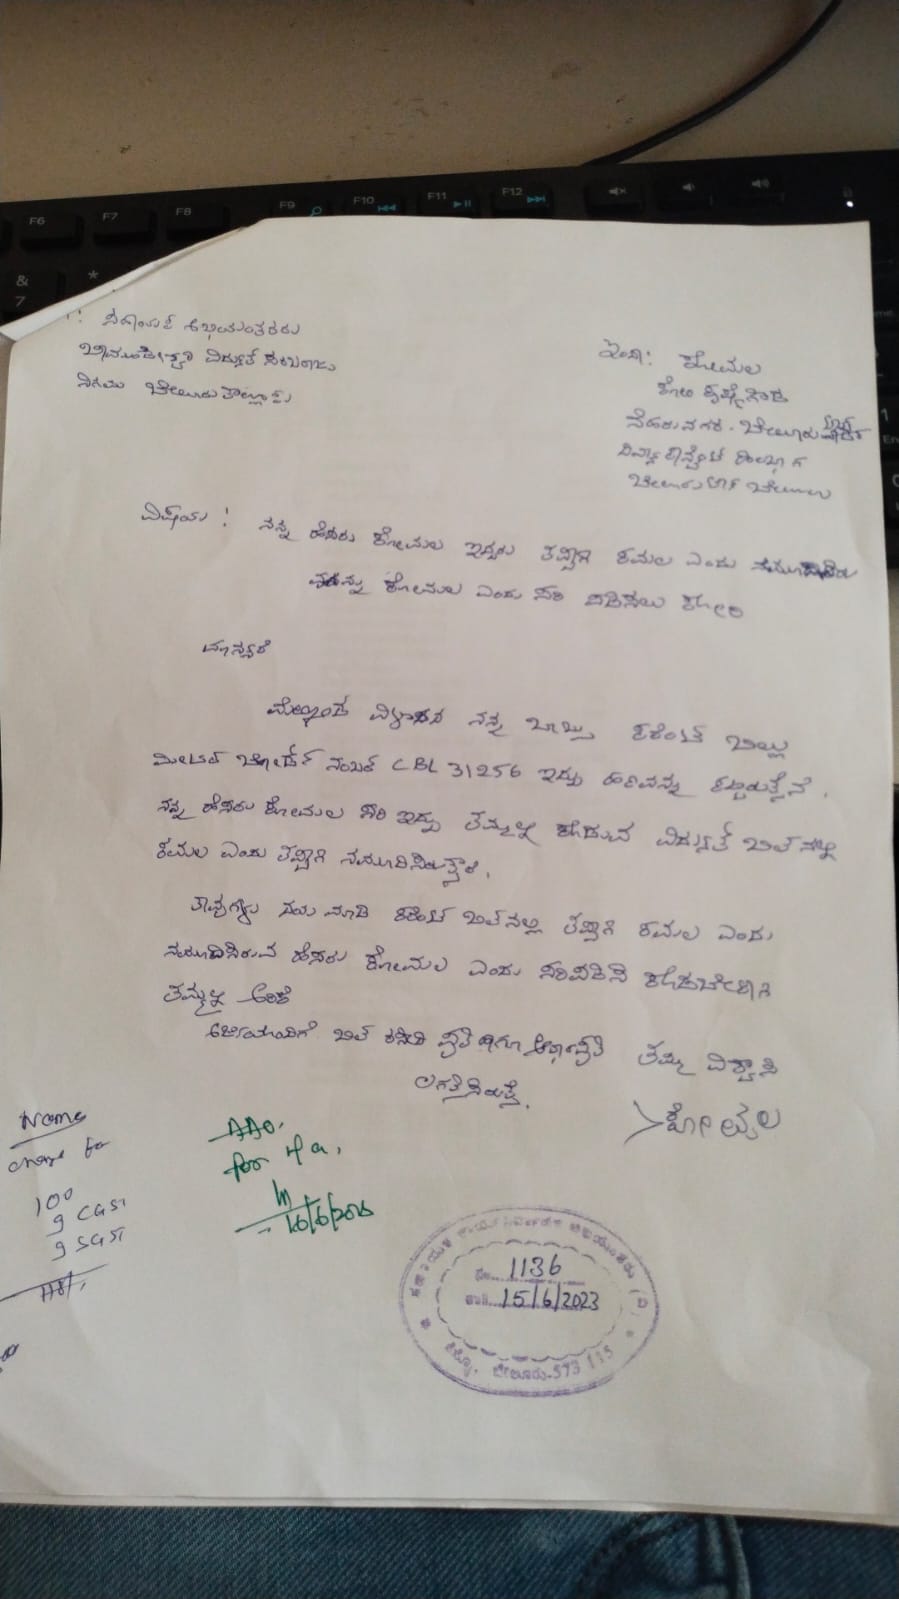 F6 F7 F8 F9 F10 F11 F12
& 7 *
ಅಭಿಯಂತರರು
ಚಾಮುಂಡೇಶ್ವರಿ ವಿದ್ಯುತ್ ಸರಬರಾಜು
ನಿಗಮ ಬೇಲೂರು ತಾಲ್ಲೂಕು
ಇಂದ: ಕೋಮಲ
ಕೋಂ ಕೃಷ್ಣೇಗೌಡ
ನೆಹರುನಗರ. ಬೇಲೂರು
ಬೇಲೂರು ಬೇಲೂರು
ವಿಷಯ: ನನ್ನ ಹೆಸರು ಕೋಮಲ ಇದ್ದು ತಪ್ಪಾಗಿ ಕಮಲ ಎಂದು
ಕೋಮಲ ಎಂದು ಸರಿ ಪಡಿಸಲು ಕೋರಿ
ಮಾನ್ಯರೆ
ಮೇಲ್ಕಂಡ ವಿಳಾಸದ ನನ್ನ ಬಾಬ್ತು ಕರೆಂಟ್ ಬಿಲ್ಲು
ಮೀಟರ್ ಬೋರ್ಡ್ ನಂಬರ್ CBL 31256 ಇದ್ದು ಹಣವನ್ನು ಕಟ್ಟಿರುತ್ತೇನೆ.
ನನ್ನ ಹೆಸರು ಕೋಮಲ ಸರಿ ಇದ್ದು ತಮ್ಮಲ್ಲಿ ಕೊಡುವ ವಿದ್ಯುತ್ ಬಿಲ್ ನಲ್ಲಿ
ಕಮಲ ಎಂದು ತಪ್ಪಾಗಿ ನಮೂದಿಸಿರುತ್ತಾರೆ.
ತಾವುಗಳು ದಯಮಾಡಿ ಕರೆಂಟ್ ಬಿಲ್‌ನಲ್ಲಿ ತಪ್ಪಾಗಿ ಕಮಲ ಎಂದು
ನಮೂದಿಸಿರುವ ಹೆಸರು ಕೋಮಲ ಎಂದು ಸರಿಪಡಿಸಿ ಕೊಡಬೇಕಾಗಿ
ತಮ್ಮಲ್ಲಿ ಅರಿಕೆ
ಅರ್ಜಿಯೊಂದಿಗೆ ಬಿಲ್ ರಸೀದಿ ಪ್ರತಿ ಹಾಗೂ ಆಧಾರ್ ಪ್ರತಿ ತಮ್ಮ ವಿಶ್ವಾಸಿ
ಲಗತ್ತಿಸಿರುತ್ತೆ.
ಕೋಮಲ
Name
change fee
100
9 CGST
9 SGST
118/.
AAO.
for n a.
16/6/2023
ನಂ. 1136
15/6/2023
ಬೇಲೂರು-573 115